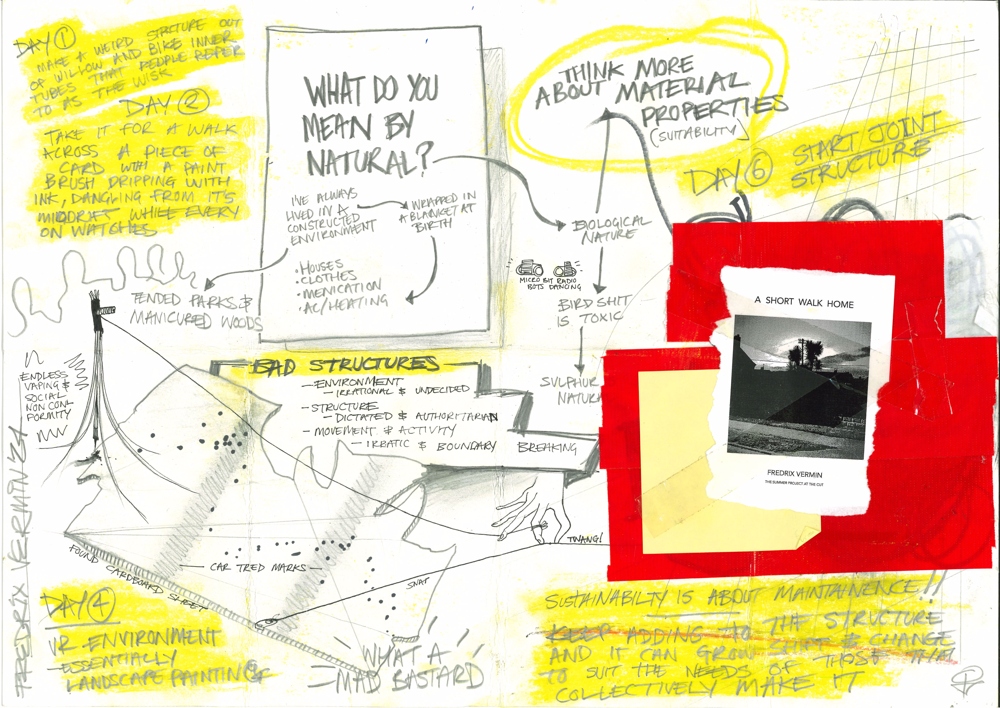 DAY 1
MAKE A WEIRD STRCTURE OUT
OF WILLOW AND BIKE INNER
TUBES THAT PEOPLE REFER
TO AS THE WISK
DAY 2
TAKE IT FOR A WALK
ACROSS A PIECE OF
CARD WITH A PAINT
BRUSH DRIPPING WITH
INK, DANGLING FROM IT'S
MIDDRIFT WHILE EVERY
ON WATCHES
WHAT DO YOU
MEAN BY
NATURAL?
I'VE ALWAYS
LIVED IN A
CONSTRUCTED
ENVIRONMENT
WRAPPED IN
A BLANKET AT
BIRTH
• HOUSES
• CLOTHES
• MENICATION
• AC/HEATING
TENDED PARKS &
MANICURED WOODS
THINK MORE
ABOUT MATERIAL
PROPERTIES
(SUITABILITY)
DAY 6 START/JOINT
STRUCTURE
BIOLOGICAL
NATURE
MICRO BIT RADIO
BOTS DANCING
BIRD SHIT
IS TOXIC
SULPHUR
NATUR
ENDLESS
VAPING &
SOCIAL
NON CON
FORMITY
BAD STRUCTURES
– ENVIRONMENT
– IRRATIONAL & UNDECIDED
– STRUCTURE
– DICTATED & AUTHORITARIAN
– MOVEMENT & ACTIVITY
– IRRATIC & BOUNDARY BREAKING
A SHORT WALK HOME
FREDRIX VERMIN
THE SUMMER PROJECT AT THE CUT
TWANG!
SNAP
CAR TRED MARKS
FOUND CARDBOARD SHEET
FREDRIX VERMIN 24
DAY 4
VR ENVIRONMENT
ESSENTIALLY
LANDSCAPE PAINTING
WHAT A
MAD BASTARD
SUSTAINABILTY IS ABOUT MAINTAINENCE!!
KEEP ADDING TO THE STRUCTURE
AND IT CAN GROW SHIFT & CHANGE
TO SUIT THE NEEDS OF THOSE THAT
COLLECTIVELY MAKE IT